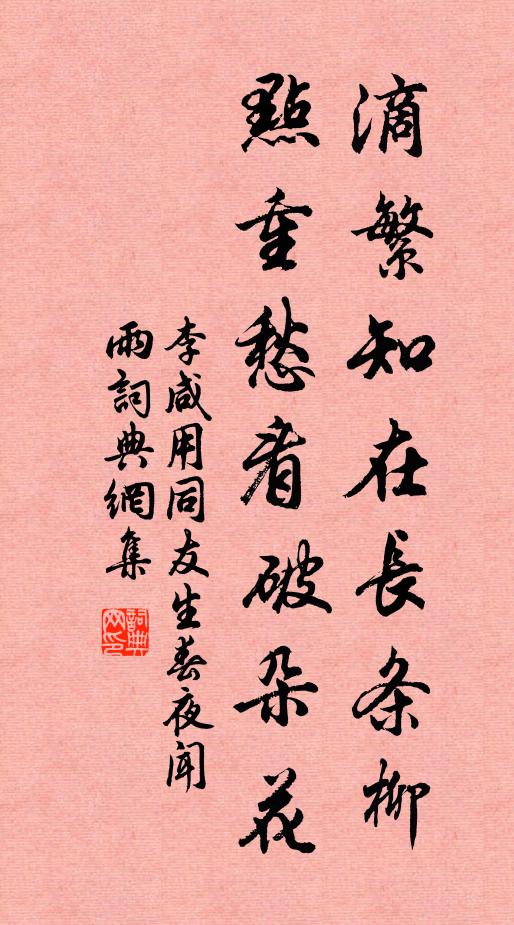 滴繁知在長条柳
點重愁看破朵花
李咸用同友生春夜聞
雨詞典網集
詞典网印